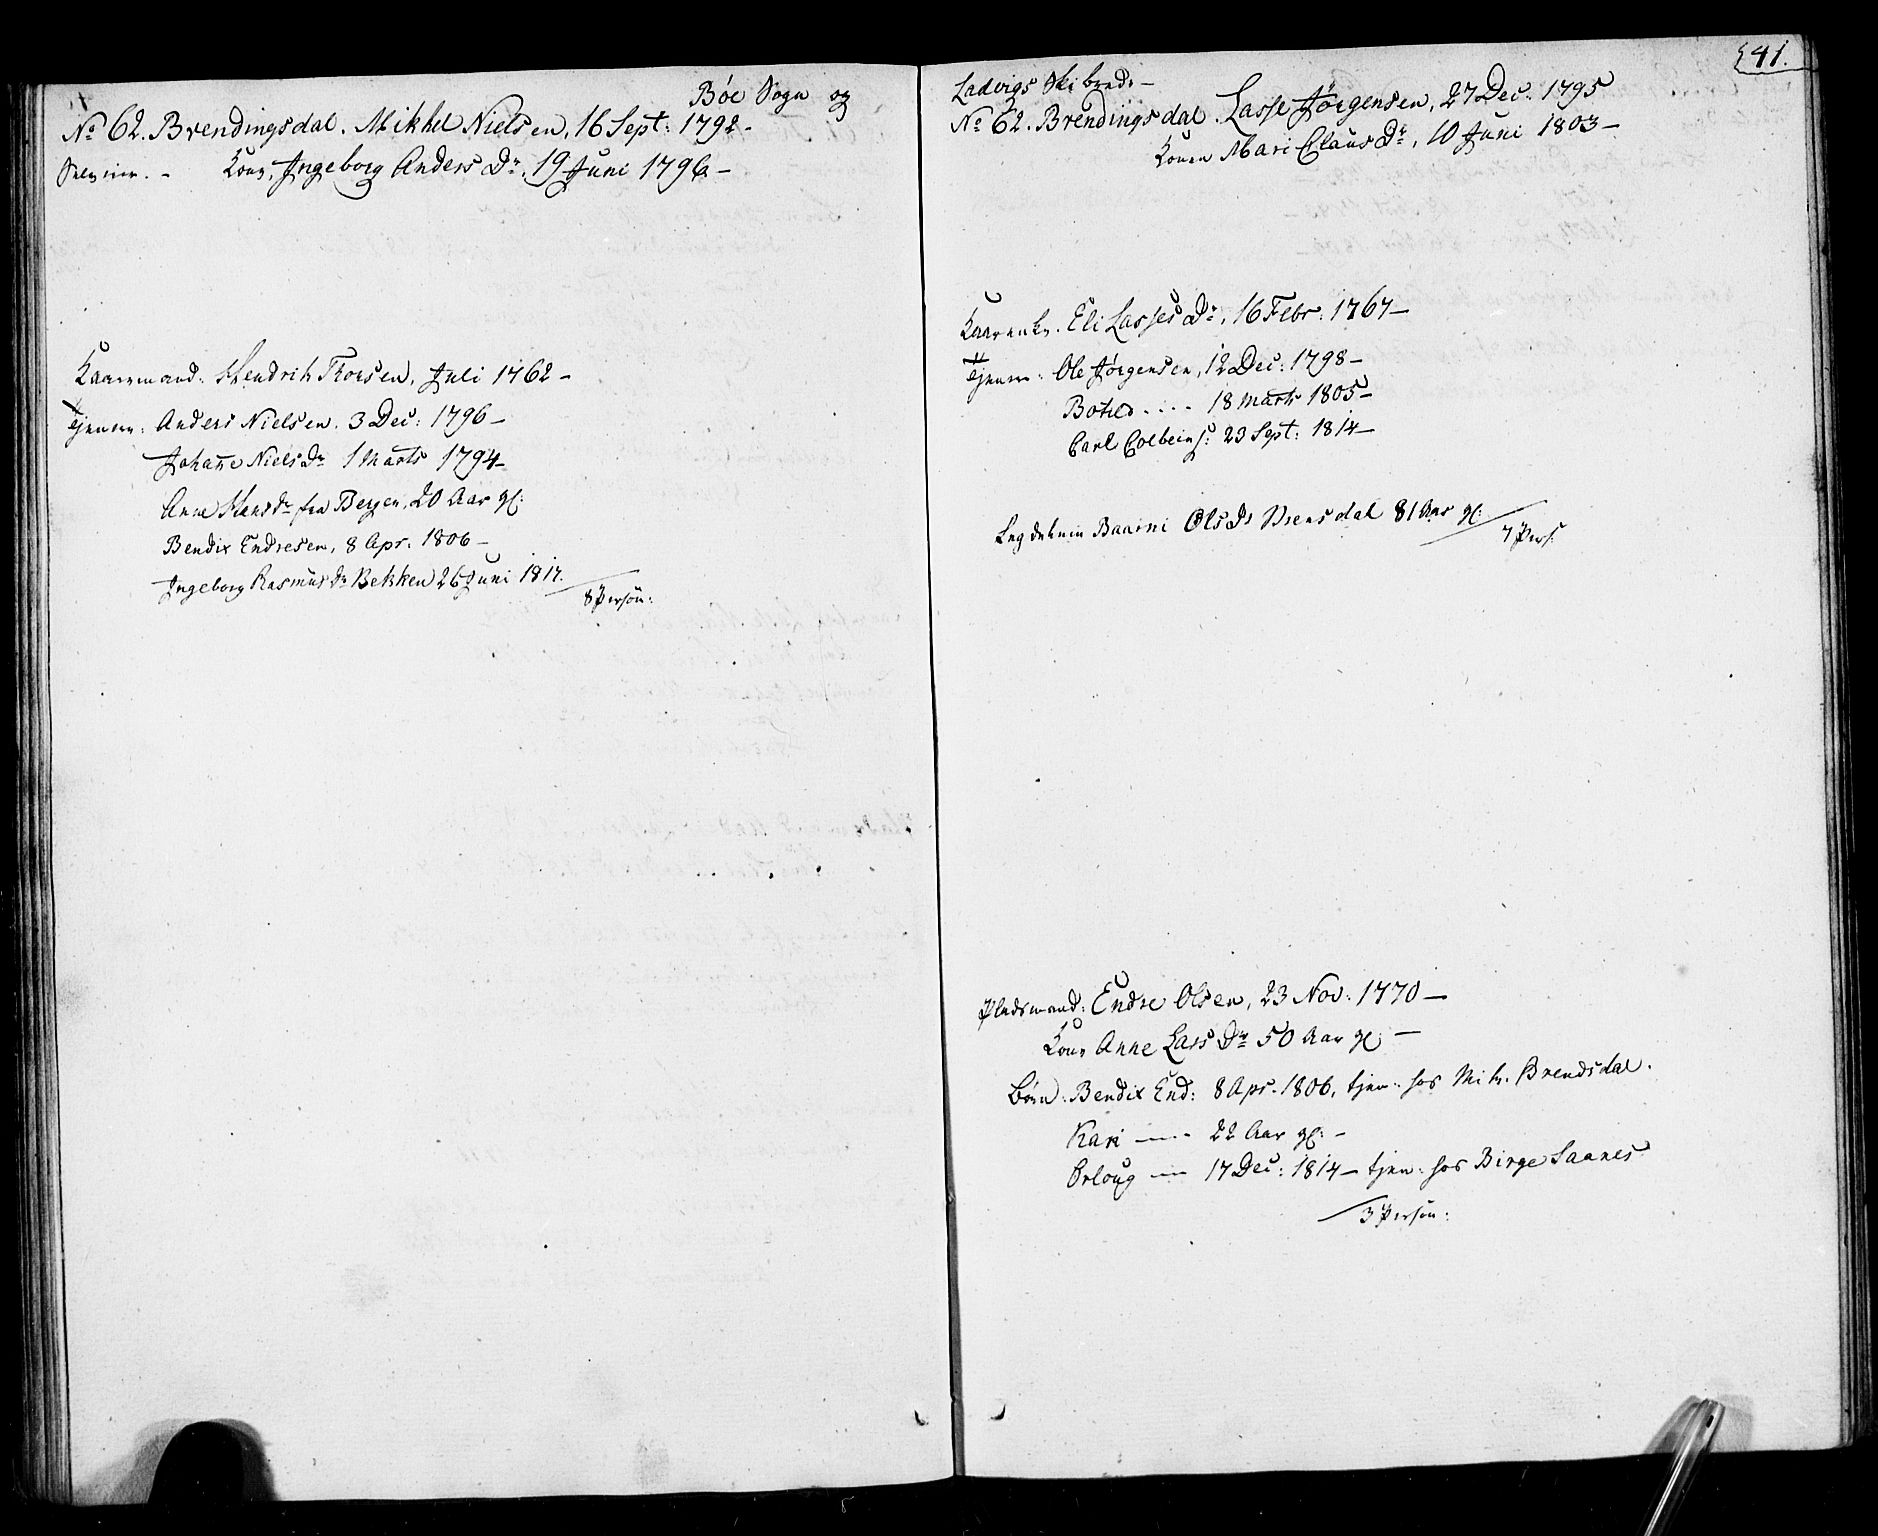 Bøe Sogn og
No 62. Brendingsdal. Mikkel Nielsen, 16 Sept: 1792 -
Kone, Ingeborg Anders Dr, 19 Juni 1796 -
Kaarmand: Hendrik Thorsen, Juli 1762 -
Tjenere: Anders Nielsen, 3 Dec: 1796 -
Johanne Niels Dr 1 Marts 1794 -
Anne Hans dr fra Bergen, 20 Aar gl:
Bendix Endresen, 8 Apr. 1806 -
Ingeborg Rasmus dr Bekken 26 Juni 1817.
8 Person:
141.
Ladvigs Skibrede -
No 62. Brendingsdal. Lasse Jørgensen, 27 Dec: 1795
Konen Mari Claus Dr, 10 Juni 1803 -
Kaarenke. Eli Lasses Dr, 16 Febr: 1767 -
Tjenere: Ole Jørgensen, 12 Dec: 1798 -
Boted .... 18 Marts 1805 -
Carl Colbeins: 23 Sept: 1814 -
Legdekone Olsdr 81 Aar gl:
7 Pers:
Pladsmand: Endre Olsen, 23 Nov: 1770 -
Kone Anne Lars Dr 50 Aar gl: -
Børn: Bendix End: 8 Apr. 1806, tjen: hos Mik. Brendsdal.
Kari --- 22 Aar gl: -
Orloug --- 17 Dec: 1814 - tjen: hos Birge Saanes
3 Person: